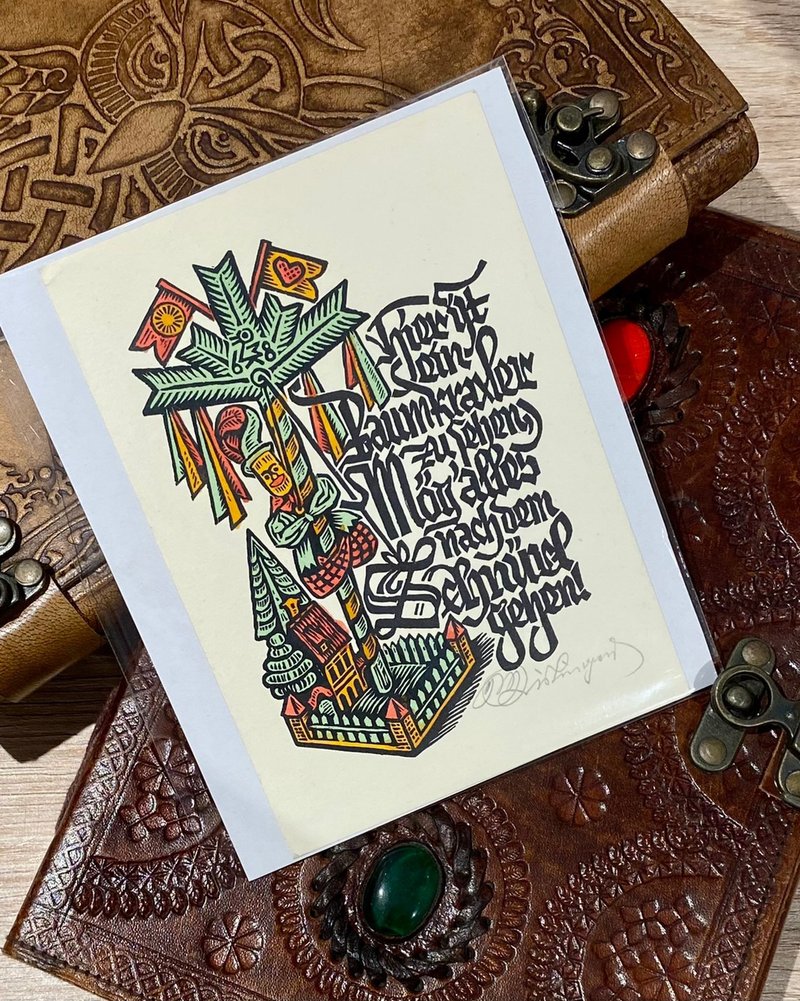 Hier ist
ein
Baumkraxler
zu sehen,
Mög' alles
nach dem
Schnürl
gehen!